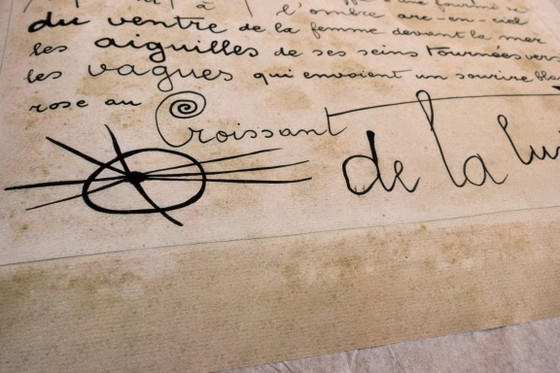 à l'ombre arc-en-ciel
du ventre de la femme devant la mer
les aiguilles de ses seins tournées vers
les vagues qui envoient un sourire
rose au Croissant de la